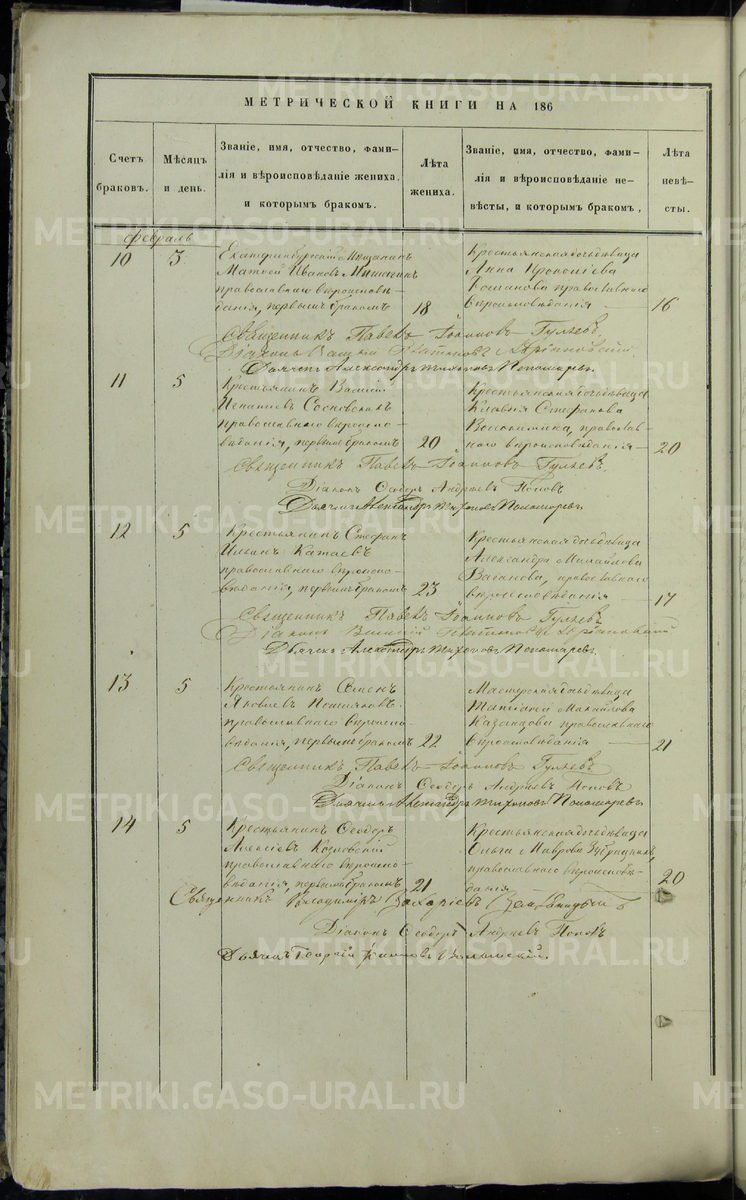 МЕТРИЧЕСКОЙ КНИГИ НА 186
Счетъ браковъ.
Мѣсяцъ и день.
Званіе, имя, отчество, фами-
лія и вѣроисповѣданіе жениха,
и которымъ бракомъ.
Лѣта жениха.
Званіе, имя, отчество, фами-
лія и вѣроисповѣданіе не-
вѣсты, и которымъ бракомъ,
Лѣта невѣ-
сты.
Февраль
10 3
Екатеринбургскій Мѣщанинъ
Матвей Ивановъ
православнаго вѣроисповѣ-
данія, первымъ бракомъ 18
Крестьянская дочь девица
Анна Прокопіева
православнаго
вѣроисповѣданія — 16
Священникъ Павелъ Іоанновъ Гуляевъ.
Діаконъ Василій
Дьячекъ Александръ Тихоновъ Пономаревъ.
11 5
Крестьянинъ Василій
Игнатіевъ Сосновскихъ
православнаго вѣроиспо-
вѣданія, первымъ бракомъ 20
Крестьянская дочь девица
Клавдія Стефанова
православ-
наго вѣроисповѣданія — 20
Священникъ Павелъ Іоанновъ Гуляевъ.
Діаконъ Ѳеодоръ Андреевъ Поповъ
Дьячекъ Александръ Тихоновъ Пономаревъ.
12 5
Крестьянинъ Стефанъ
Ильинъ Катаевъ
православнаго вѣроиспо-
вѣданія, первымъ бракомъ 23
Крестьянская дочь девица
Александра Михайлова
Ваганова, православнаго
вѣроисповѣданія — 17
Священникъ Павелъ Іоанновъ Гуляевъ
Діаконъ Василій
Дьячекъ Александръ Тихоновъ Пономаревъ.
13 5
Крестьянинъ Семенъ
Яковлевъ
православнаго вѣроиспо-
вѣданія, первымъ бракомъ 22
Мастерская дочь девица
Михайлова
Казанцова православнаго
вѣроисповѣданія — 21
Священникъ Павелъ Іоанновъ Гуляевъ
Діаконъ Ѳеодоръ Андреевъ Поповъ
Дьячекъ Александръ Тихоновъ Пономаревъ
14 5
Крестьянинъ Ѳеодоръ
Алексіевъ Козловскій
православнаго вѣроиспо-
вѣданія, первымъ бракомъ 21
Крестьянская дочь девица
Ольга
православнаго вѣроисповѣ-
данія — 20
Священникъ Владимиръ Захаріевъ
Діаконъ Ѳеодоръ Андреевъ Поповъ
Дьячекъ Георгій
METRIKI.GASO-URAL.RU